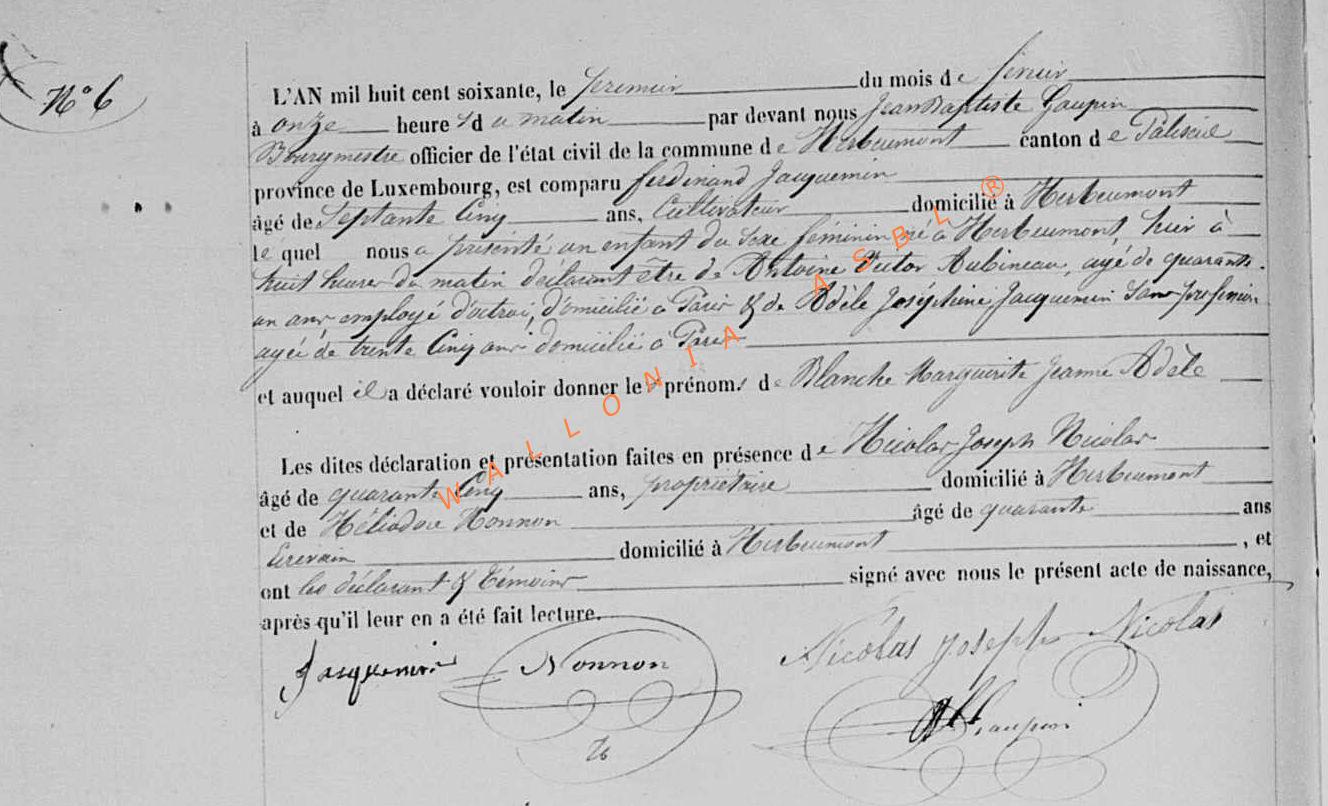 N° 6
L'AN mil huit cent soixante, le premier du mois de février
à onze heures du matin par devant nous Jean Baptiste Gaupin
Bourgmestre officier de l'état civil de la commune de Herbeumont canton de Paliseul
province de Luxembourg, est comparu ferdinand Jacquemin
âgé de Septante Cinq ans, Cultivateur domicilié à Herbeumont
le quel nous a présenté un enfant du sexe féminin né à Herbeumont, hier à
huit heures du matin déclarant être de Antoine Victor Aubineau, agé de quarante
un ans employé d'octroi, domicilié à Paris & de Adèle Joséphine Jacquemin sans profession
agée de trente Cinq ans domicilié à Paris
et auquel il a déclaré vouloir donner les prénoms de Blanche Marguerite Jeanne Adèle
Les dites déclaration et présentation faites en présence de Nicolas Joseph Nicolas
âgé de quarante Cinq ans, propriétaire domicilié à Herbeumont
et de Héliodore Nonnon âgé de quarante ans
Ecrivain domicilié à Herbeumont, et
ont les déclarant & témoins signé avec nous le présent acte de naissance,
après qu'il leur en a été fait lecture.
Jacquemin Nonnon Nicolas Joseph Nicolas
Gaupin
WALLONIA ASBL ®